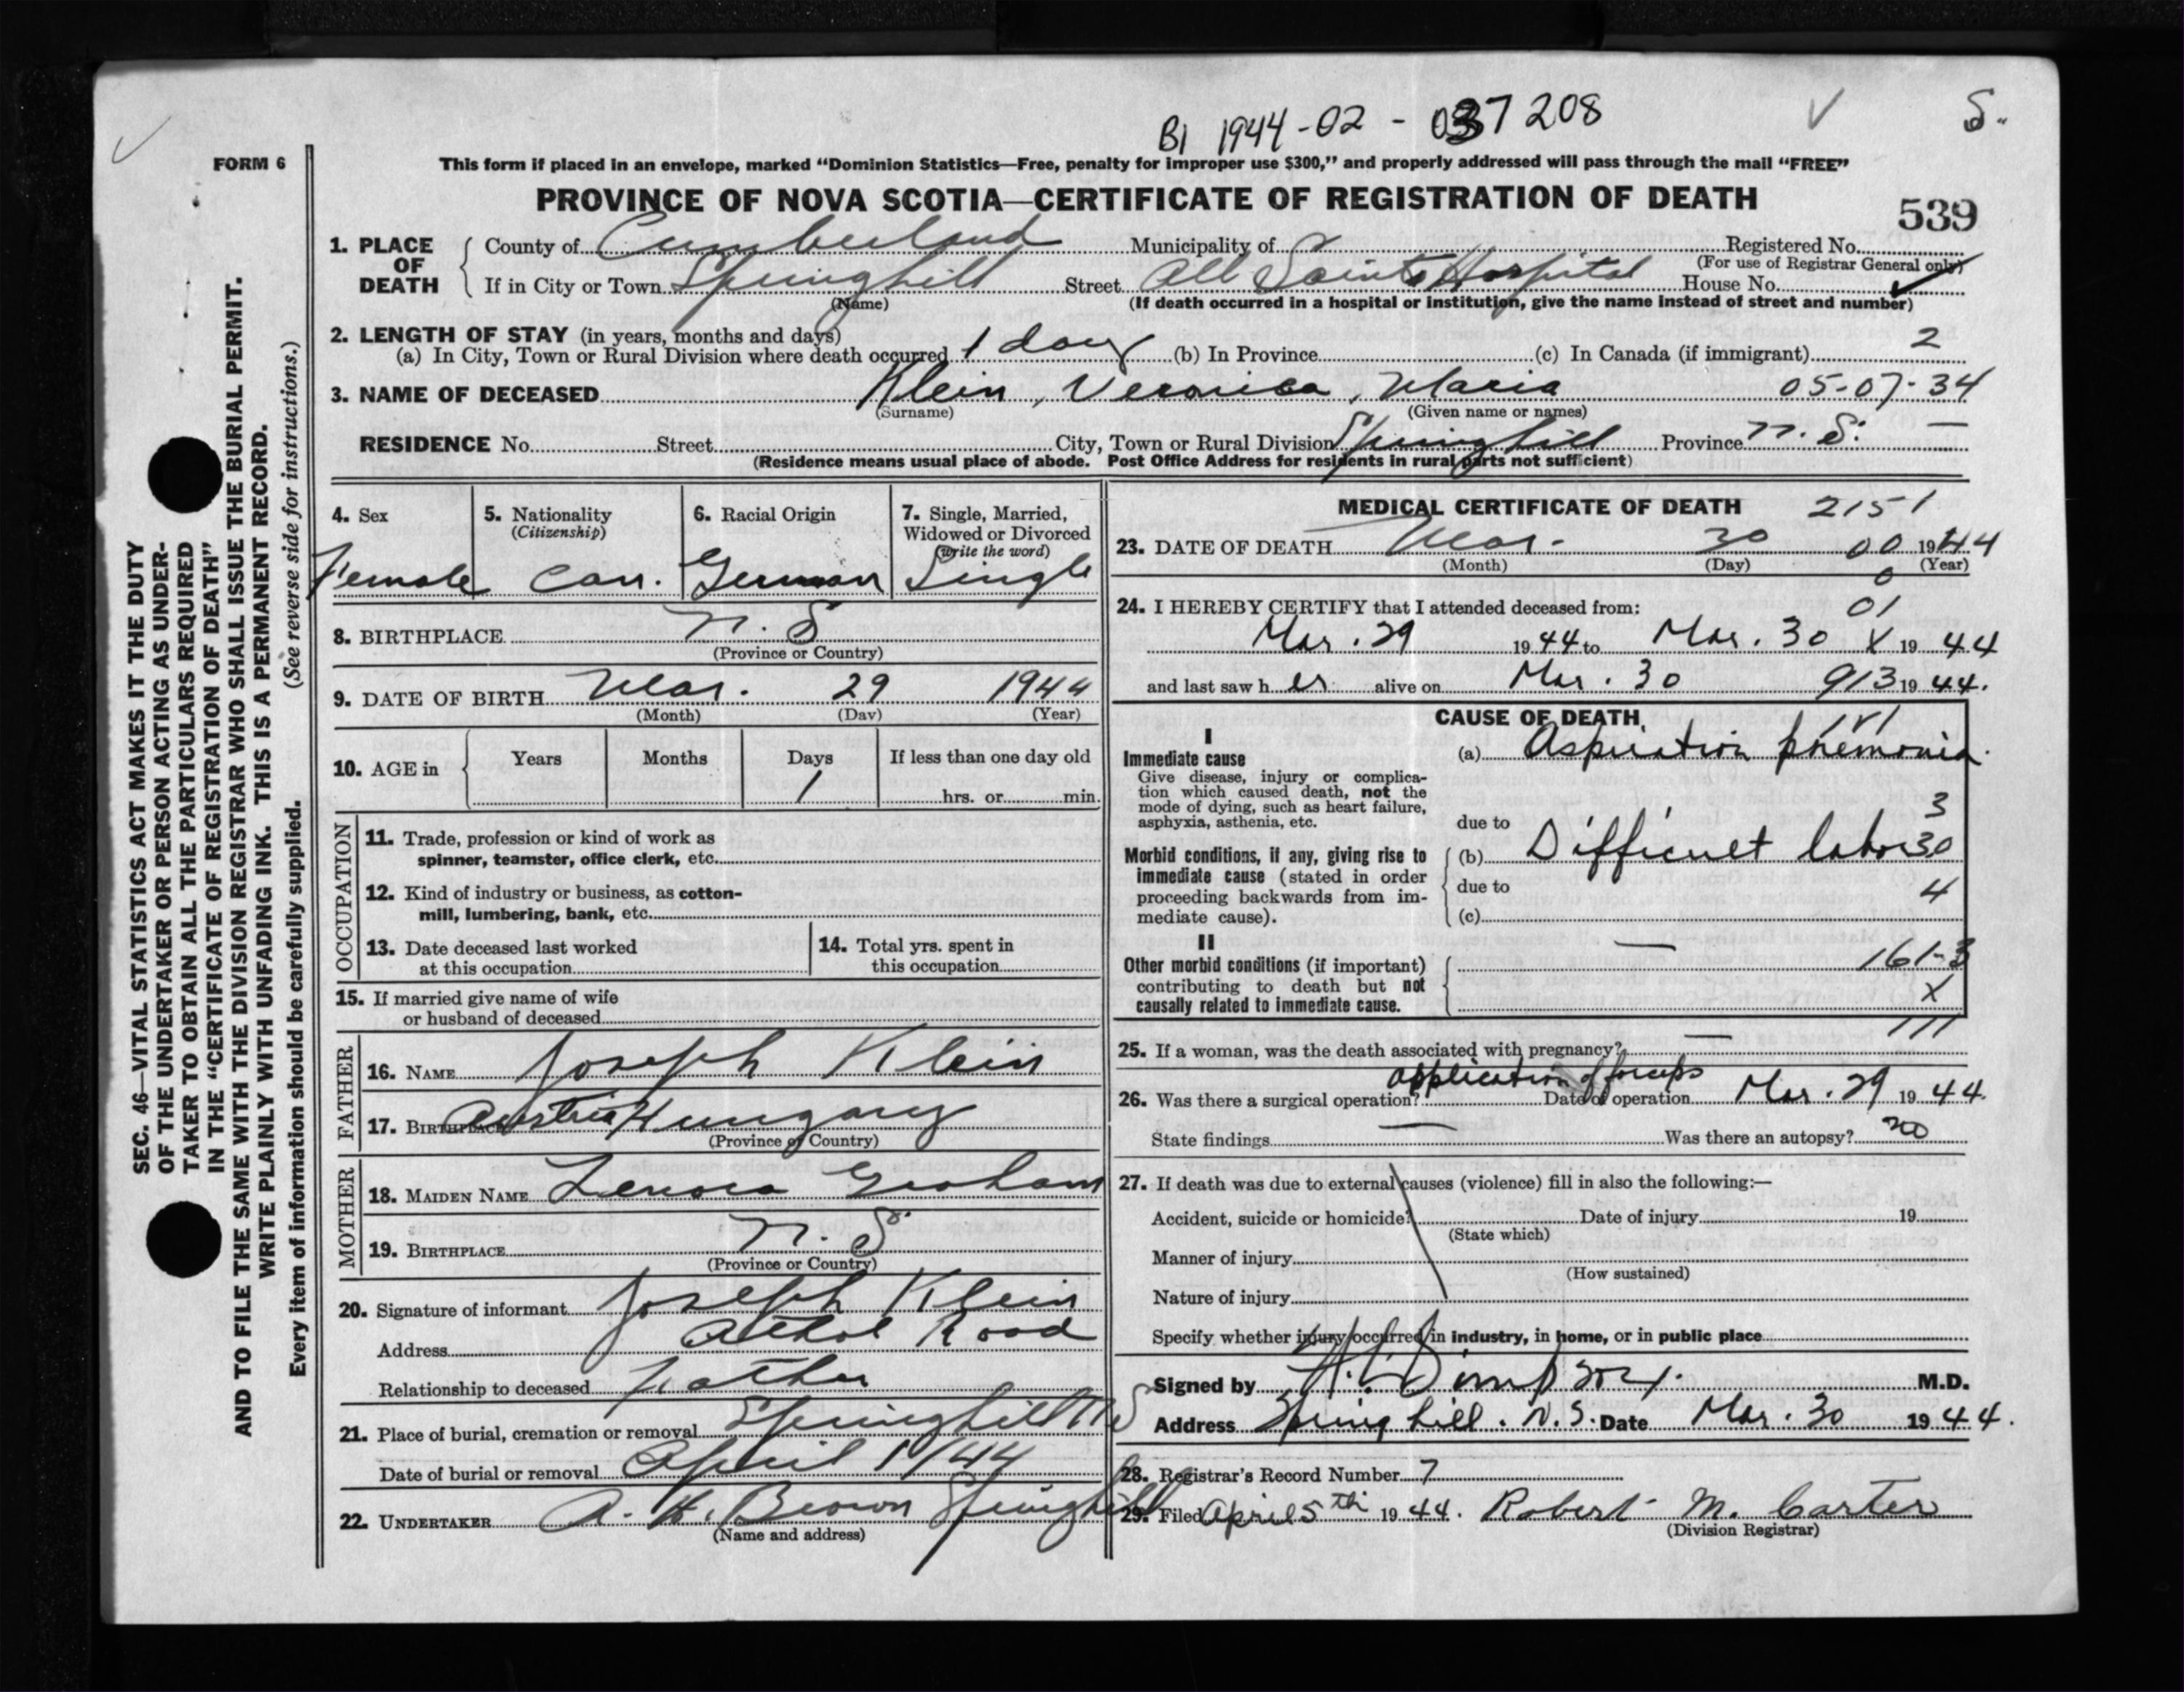 BI 1944-02-037208
S.
FORM 6
This form if placed in an envelope, marked “Dominion Statistics—Free, penalty for improper use $300,” and properly addressed will pass through the mail “FREE”
PROVINCE OF NOVA SCOTIA—CERTIFICATE OF REGISTRATION OF DEATH
539
1. PLACE OF DEATH
County of Cumberland Municipality of Registered No.
(For use of Registrar General only)
If in City or Town Springhill Street All Saints Hospital House No.
(Name) (If death occurred in a hospital or institution, give the name instead of street and number)
2. LENGTH OF STAY (in years, months and days)
(a) In City, Town or Rural Division where death occurred 1 day (b) In Province (c) In Canada (if immigrant) 2
3. NAME OF DECEASED Klein, Veronica, Maria 05-07-34
(Surname) (Given name or names)
RESIDENCE No. Street City, Town or Rural Division Springhill Province N. S. —
(Residence means usual place of abode. Post Office Address for residents in rural parts not sufficient)
SEC. 46—VITAL STATISTICS ACT MAKES IT THE DUTY
OF THE UNDERTAKER OR PERSON ACTING AS UNDER-
TAKER TO OBTAIN ALL THE PARTICULARS REQUIRED
IN THE “CERTIFICATE OF REGISTRATION OF DEATH”
AND TO FILE THE SAME WITH THE DIVISION REGISTRAR WHO SHALL ISSUE THE BURIAL PERMIT.
WRITE PLAINLY WITH UNFADING INK. THIS IS A PERMANENT RECORD.
Every item of information should be carefully supplied. (See reverse side for instructions.)
4. Sex
Female
5. Nationality
(Citizenship)
Can.
6. Racial Origin
German
7. Single, Married,
Widowed or Divorced
(Write the word)
Single
8. BIRTHPLACE N. S
(Province or Country)
9. DATE OF BIRTH Mar. 29 1944
(Month) (Day) (Year)
10. AGE in
Years Months Days If less than one day old
1 hrs. or min.
OCCUPATION
11. Trade, profession or kind of work as
spinner, teamster, office clerk, etc.
12. Kind of industry or business, as cotton-
mill, lumbering, bank, etc.
13. Date deceased last worked
at this occupation
14. Total yrs. spent in
this occupation
15. If married give name of wife
or husband of deceased
FATHER
16. NAME Joseph Klein
17. BIRTHPLACE Austria Hungary
(Province or Country)
MOTHER
18. MAIDEN NAME Lenora Graham
19. BIRTHPLACE N. S
(Province or Country)
20. Signature of informant Joseph Klein
Address Athol Road
Relationship to deceased Father
21. Place of burial, cremation or removal Springhill NS
Date of burial or removal April 1/44
22. UNDERTAKER A. H. Brown Springhill
(Name and address)
MEDICAL CERTIFICATE OF DEATH 2151
23. DATE OF DEATH Mar. 30 00 1944
(Month) (Day) (Year)
0
24. I HEREBY CERTIFY that I attended deceased from: 01
Mar. 29 1944 to Mar. 30 X 1944
and last saw her alive on Mar. 30 913 1944.
CAUSE OF DEATH
I
Immediate cause
Give disease, injury or complica-
tion which caused death, not the
mode of dying, such as heart failure,
asphyxia, asthenia, etc.
(a) Aspiration pnemonia.
due to 3
Morbid conditions, if any, giving rise to
immediate cause (stated in order
proceeding backwards from im-
mediate cause).
(b) Difficult labor 30
due to 4
(c)
II
Other morbid conditions (if important)
contributing to death but not
causally related to immediate cause.
— 161-3
X
111
25. If a woman, was the death associated with pregnancy? —
26. Was there a surgical operation? application of forceps Date of operation Mar. 29 1944.
State findings — Was there an autopsy? no
27. If death was due to external causes (violence) fill in also the following:—
Accident, suicide or homicide? Date of injury 19
(State which)
Manner of injury
(How sustained)
Nature of injury
Specify whether injury occurred in industry, in home, or in public place
Signed by Simpson. M.D.
Address Springhill. N.S. Date Mar. 30 1944.
28. Registrar's Record Number 7
29. Filed April 5th 1944. Robert M. Carter
(Division Registrar)